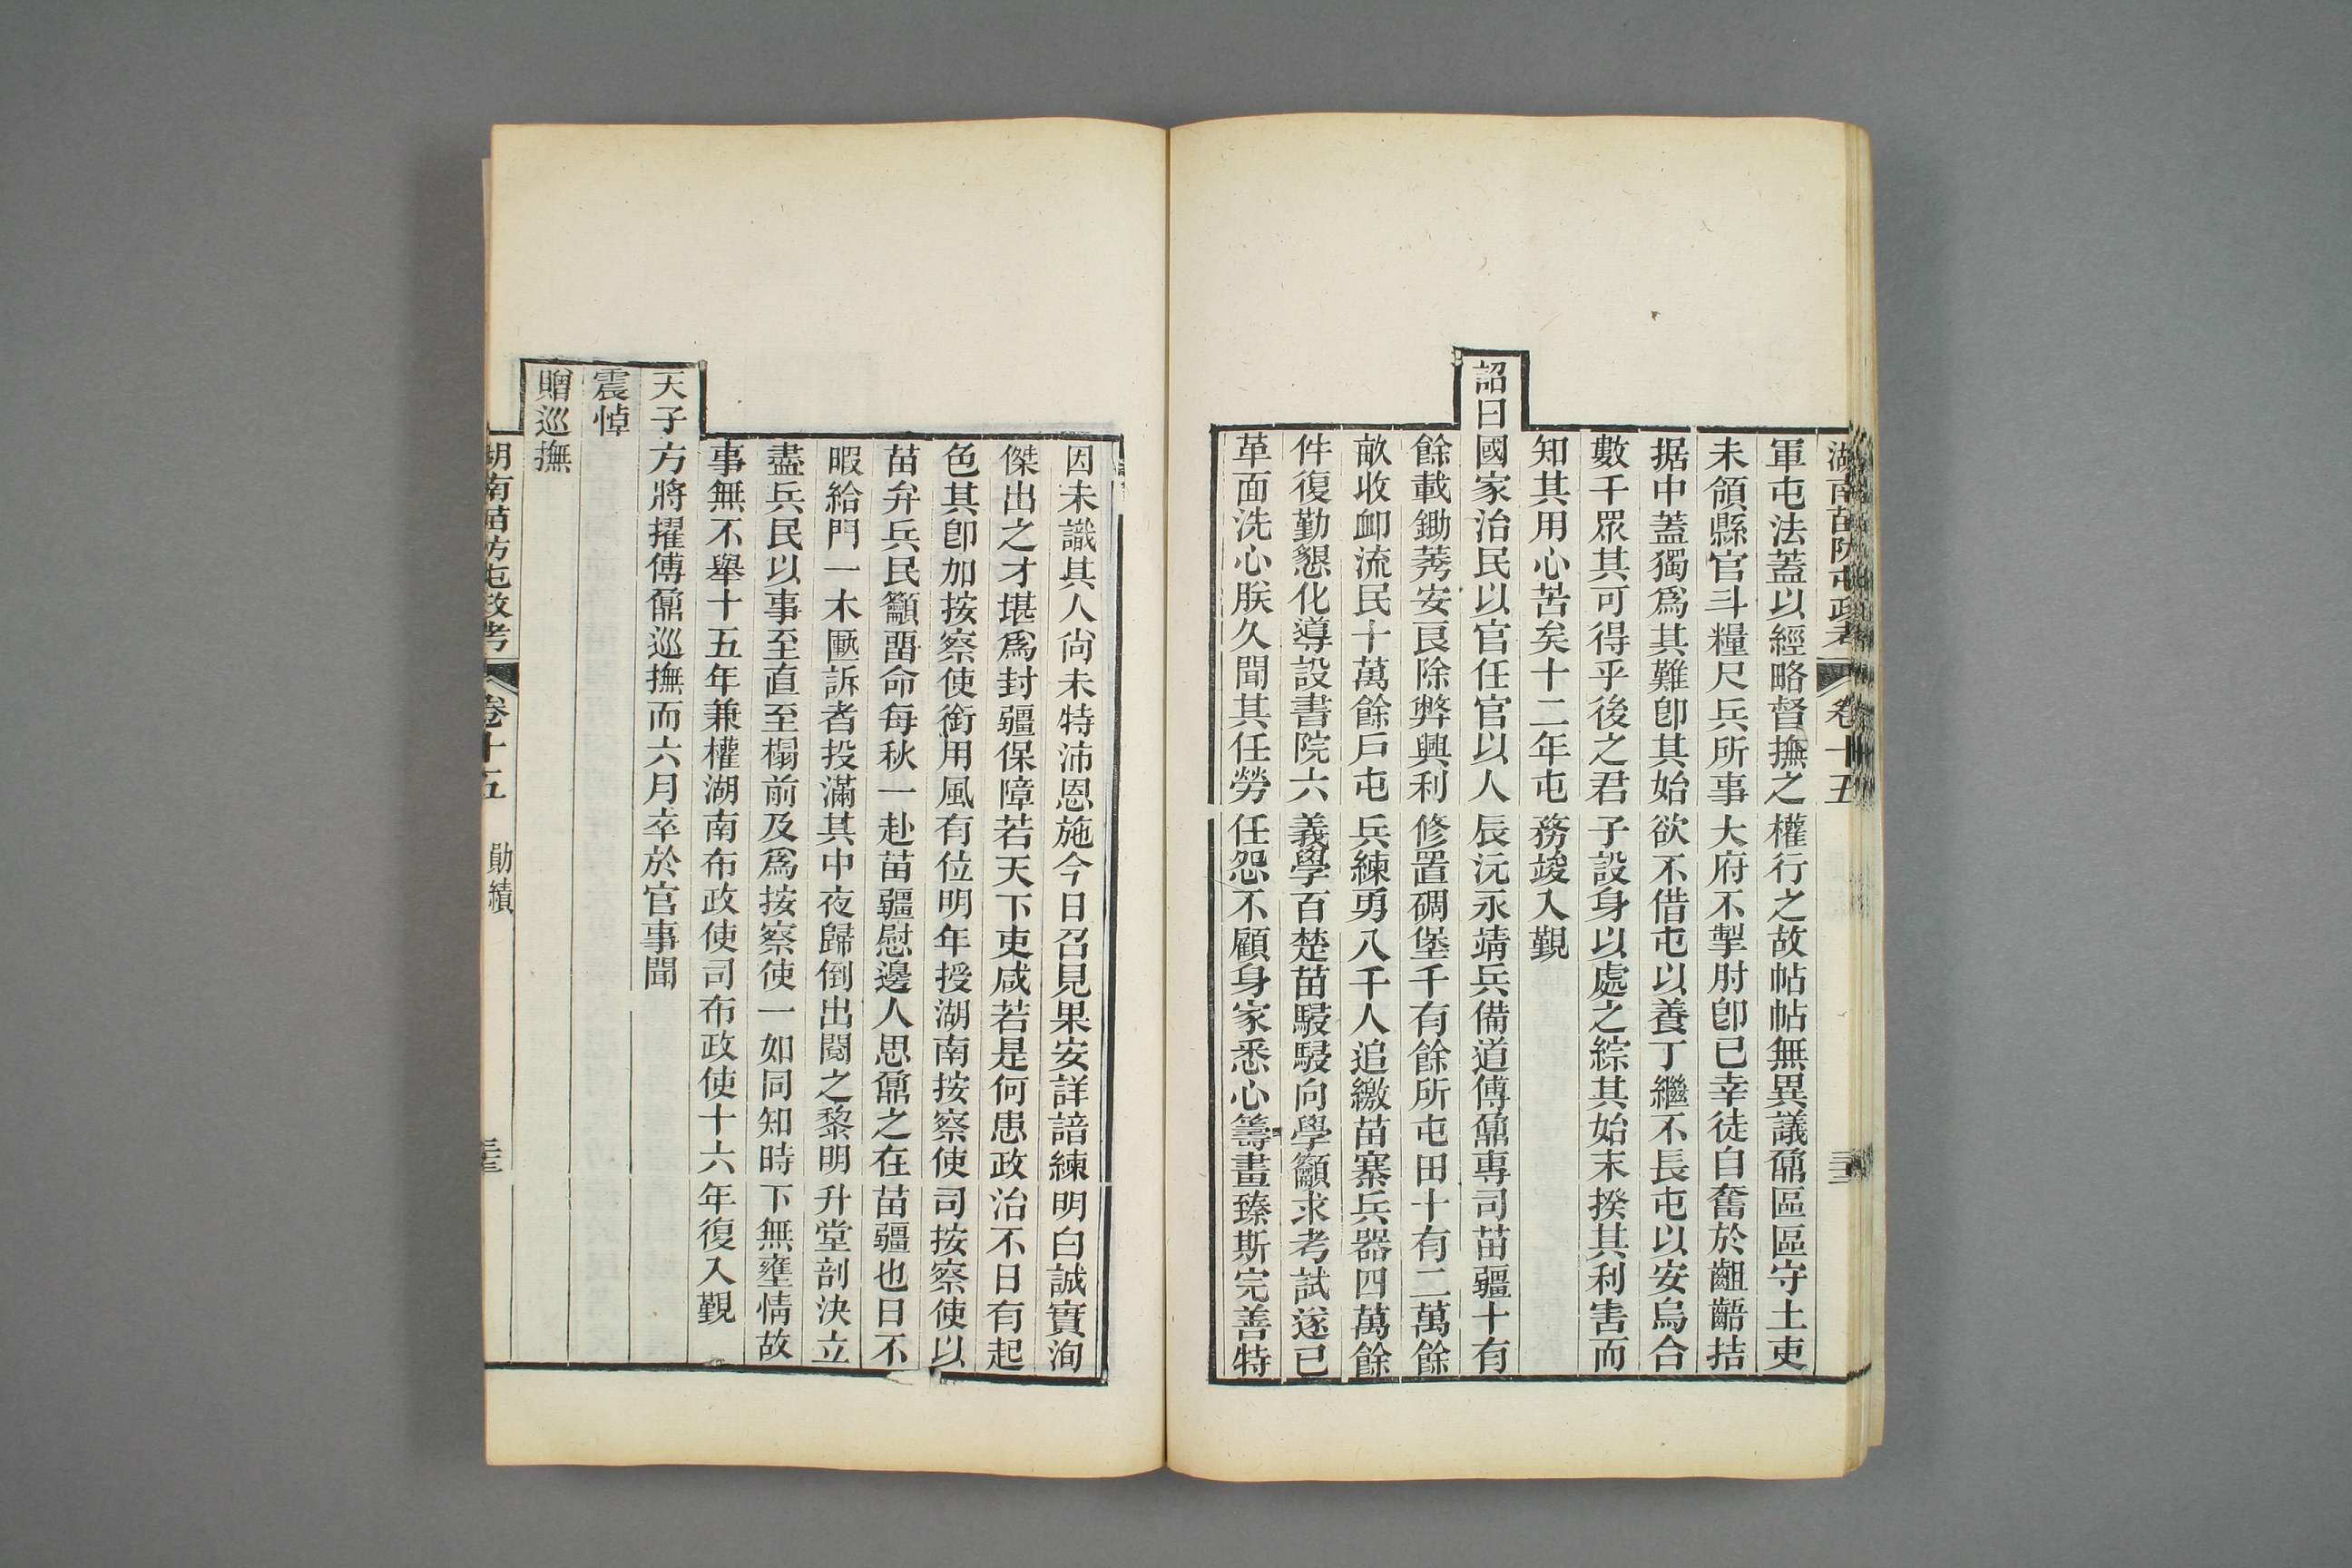 湖南苗防屯政考 卷十五
軍屯法蓋以經略督撫之權行之故帖帖無異議鼐區區守土吏
未領縣官斗糧尺兵所事大府不掣肘卽已幸徒自奮於齟齬拮
据中蓋獨爲其難卽其始欲不借屯以養丁繼不長屯以安烏合
數千眾其可得乎後之君子設身以處之綜其始末揆其利害而
知其用心苦矣十二年屯務竣入覲
詔曰國家治民以官任官以人辰沅永靖兵備道傅鼐專司苗疆十有
餘載鋤莠安良除弊興利修置碉堡千有餘所屯田十有二萬餘
畝收卹流民十萬餘戶屯兵練勇八千人追繳苗寨兵器四萬餘
件復勤懇化導設書院六義學百楚苗駸駸向學籲求考試遂已
革面洗心朕久聞其任勞任怨不顧身家悉心籌畫臻斯完善特
因未識其人尙未特沛恩施今日召見果安詳諳練明白誠實洵
傑出之才堪爲封疆保障若天下吏咸若是何患政治不日有起
色其卽加按察使銜用風有位明年授湖南按察使司按察使以
苗弁兵民籲畱命每秋一赴苗疆慰邊人思鼐之在苗疆也日不
暇給門一木匭訴者投滿其中夜歸倒出閱之黎明升堂剖決立
盡兵民以事至直至榻前及爲按察使一如同知時下無壅情故
事無不舉十五年兼權湖南布政使司布政使十六年復入覲
天子方將擢傅鼐巡撫而六月卒於官事聞
震悼
贈巡撫
湖南苗防屯政考 卷十五 勛績